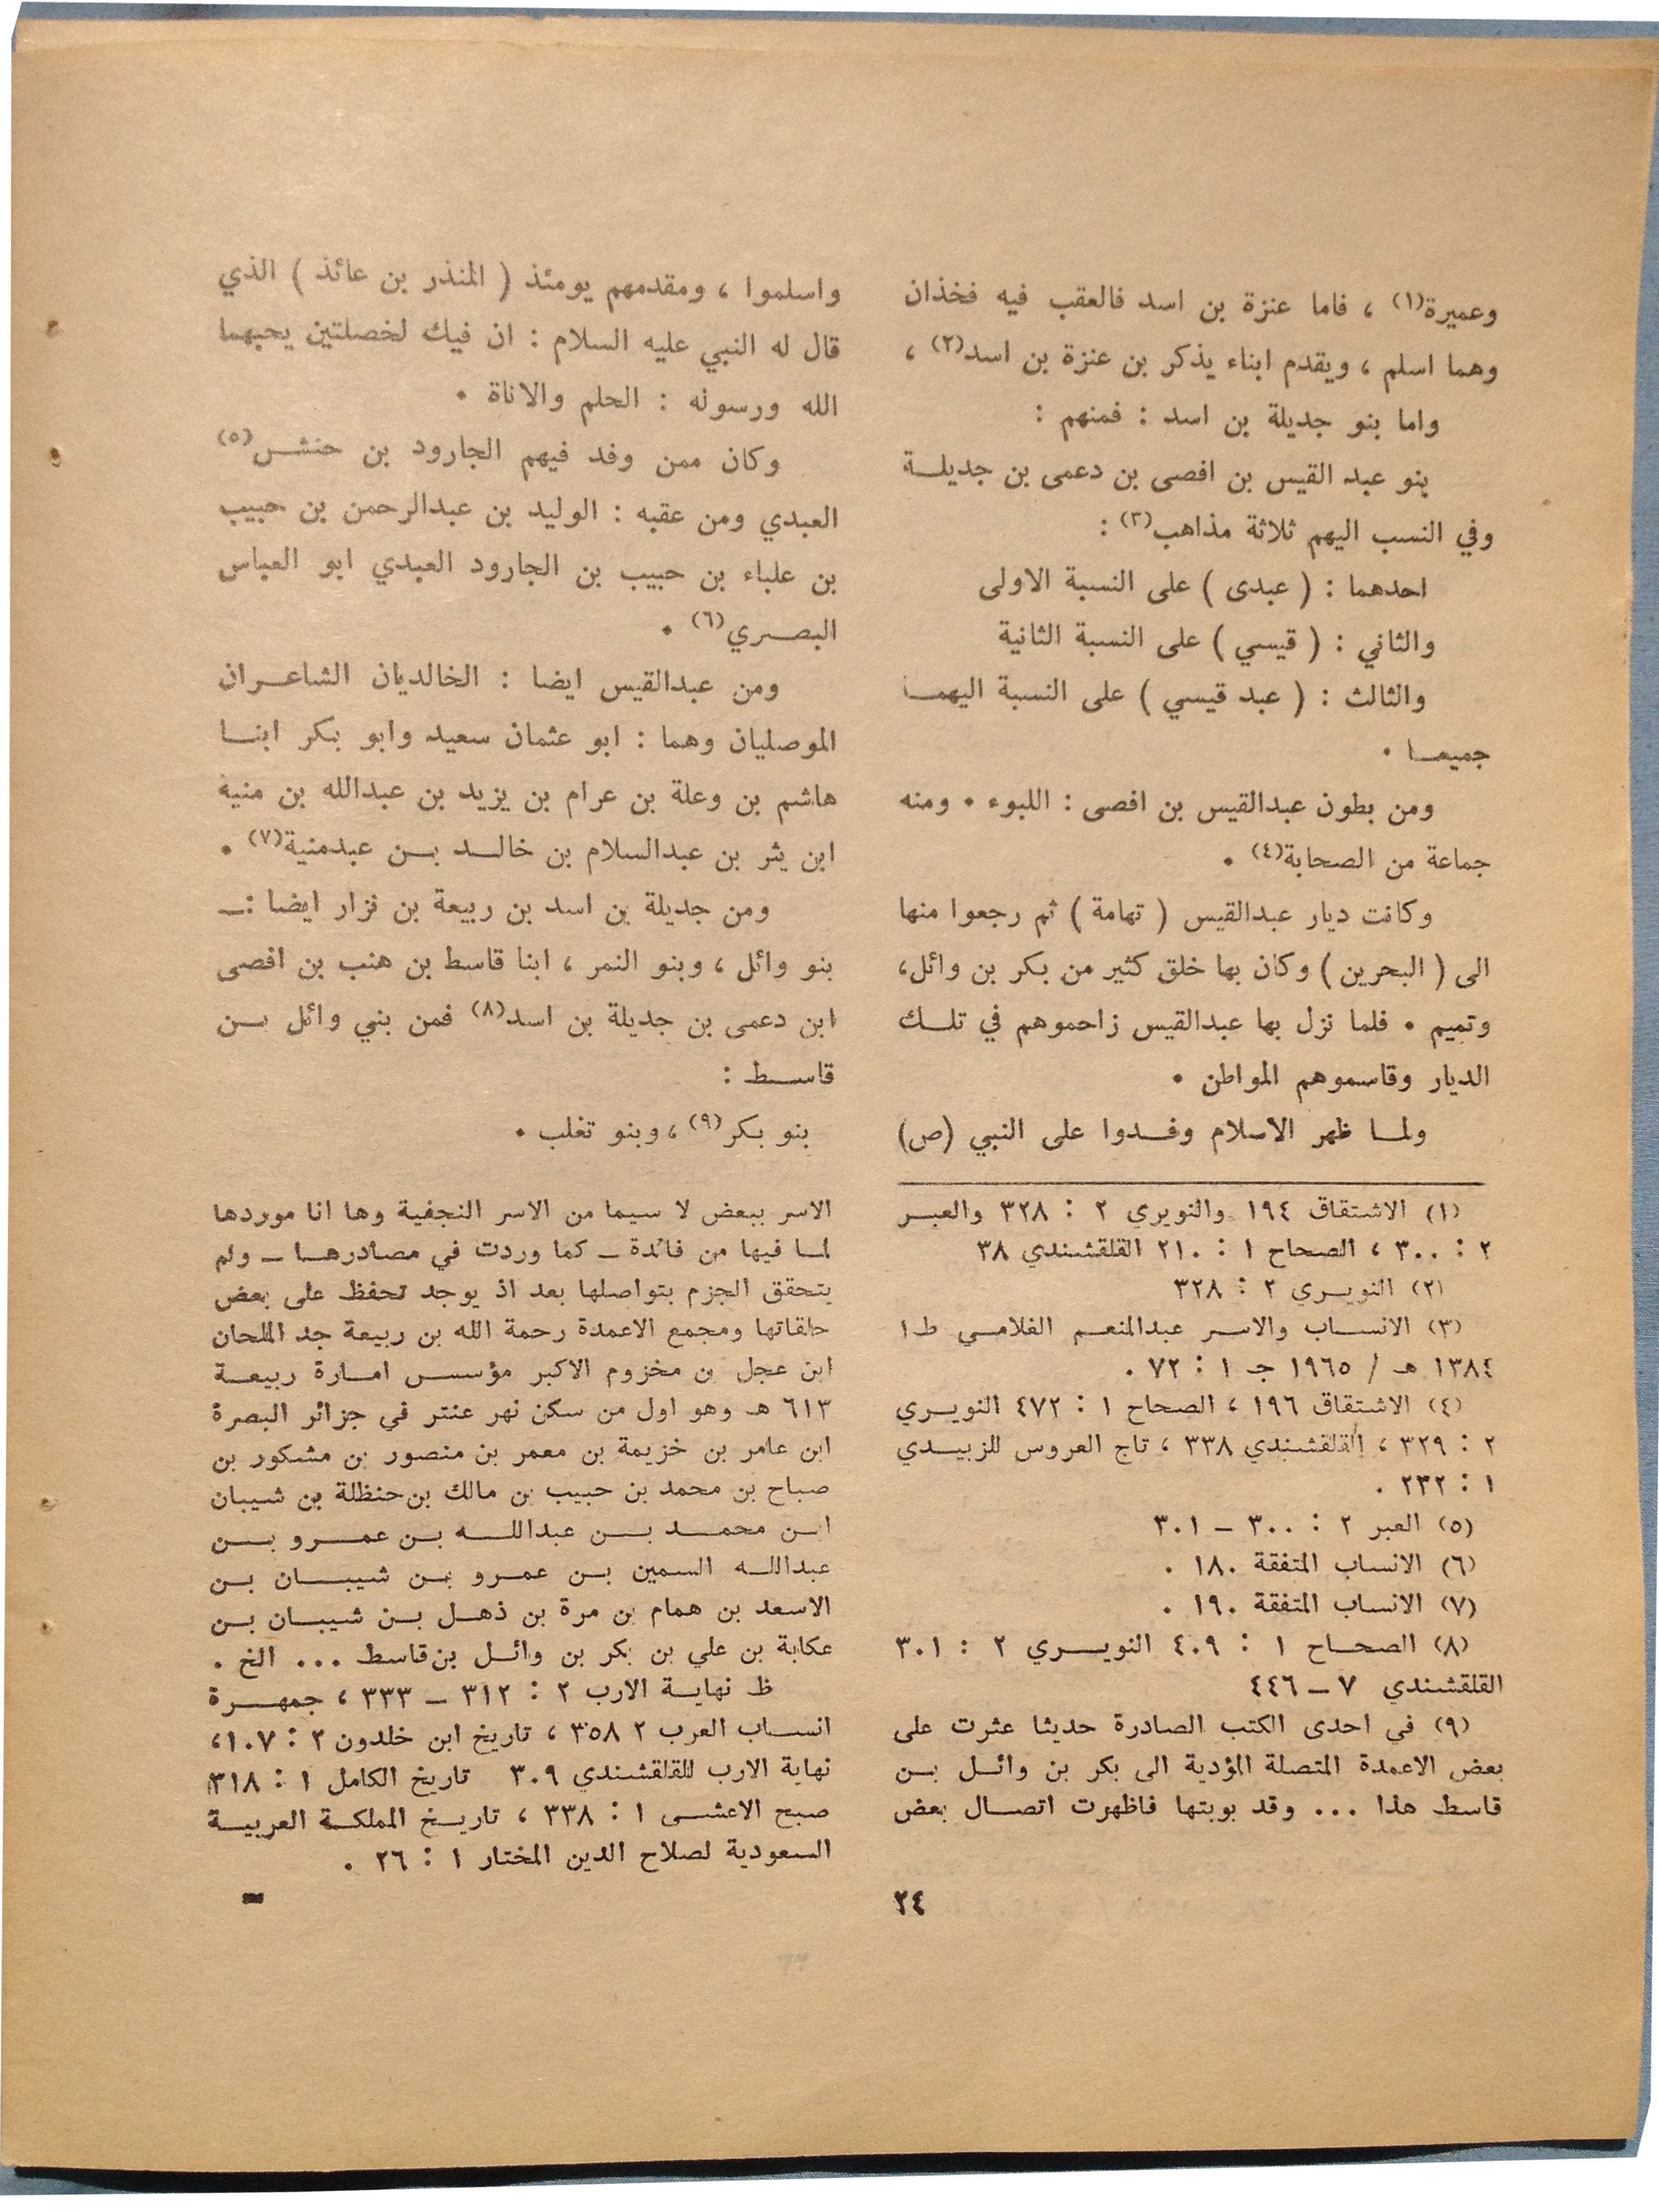 وعميرة(١) ، فاما عنزة بن اسد فالعقب فيه فخذان
وهما اسلم ، ويقدم ابناء يذكر بن عنزة بن اسد(٢) ،
واما بنو جديلة بن اسد : فمنهم :
بنو عبد القيس بن افصى بن دعمى بن جديلة
وفي النسب اليهم ثلاثة مذاهب(٣) :
احدهما : ( عبدى ) على النسبة الاولى
والثاني : ( قيسي ) على النسبة الثانية
والثالث : ( عبد قيسي ) على النسبة اليهما
جميعا .
ومن بطون عبدالقيس بن افصى : اللبوء . ومنه
جماعة من الصحابة(٤) .
وكانت ديار عبدالقيس ( تهامة ) ثم رجعوا منها
الى ( البحرين ) وكان بها خلق كثير من بكر بن وائل،
وتميم . فلما نزل بها عبدالقيس زاحموهم في تلك
الديار وقاسموهم المواطن .
ولما ظهر الاسلام وفدوا على النبي (ص)
واسلموا ، ومقدمهم يومئذ ( المنذر بن عائذ ) الذي
قال له النبي عليه السلام : ان فيك لخصلتين يحبهما
الله ورسوله : الحلم والاناة .
وكان ممن وفد فيهم الجارود بن حنش(٥)
العبدي ومن عقبه : الوليد بن عبدالرحمن بن حبيب
بن علباء بن حبيب بن الجارود العبدي ابو العباس
البصري(٦) .
ومن عبدالقيس ايضا : الخالديان الشاعران
الموصليان وهما : ابو عثمان سعيد وابو بكر ابنا
هاشم بن وعلة بن عرام بن يزيد بن عبدالله بن منية
ابن يثر بن عبدالسلام بن خالد بن عبدمنية(٧) .
ومن جديلة بن اسد بن ربيعة بن نزار ايضا :ـ
بنو وائل ، وبنو النمر ، ابنا قاسط بن هنب بن افصى
ابن دعمى بن جديلة بن اسد(٨) فمن بني وائل بن
قاسط :
بنو بكر(٩) ، وبنو تغلب .
(١) الاشتقاق ١٩٤ والنويري ٢ : ٣٢٨ والعبر
٢ : ٣٠٠ ، الصحاح ١ : ٢١٠ القلقشندي ٣٨
(٢) النويري ٢ : ٣٢٨
(٣) الانساب والاسر عبدالمنعم الغلامي ط١
١٣٨٤ هـ / ١٩٦٥ جـ ١ : ٧٢ .
(٤) الاشتقاق ١٩٦ ، الصحاح ١ : ٤٧٢ النويري
٢ : ٣٢٩ ، القلقشندي ٣٣٨ ، تاج العروس للزبيدي
١ : ٢٣٢ .
(٥) العبر ٢ : ٣٠٠ ـ ٣٠١
(٦) الانساب المتفقة ١٨٠ .
(٧) الانساب المتفقة ١٩٠ .
(٨) الصحاح ١ : ٤٠٩ النويري ٢ : ٣٠١
القلقشندي ٧ ـ ٤٤٦
(٩) في احدى الكتب الصادرة حديثا عثرت على
بعض الاعمدة المتصلة المؤدية الى بكر بن وائل بن
قاسط هذا ... وقد بوبتها فاظهرت اتصال بعض
الاسر ببعض لا سيما من الاسر النجفية وها انا موردها
لما فيها من فائدة ـ كما وردت في مصادرها ـ ولم
يتحقق الجزم بتواصلها بعد اذ يوجد تحفظ على بعض
حلقاتها ومجمع الاعمدة رحمة الله بن ربيعة جد الملحان
ابن عجل بن مخزوم الاكبر مؤسس امارة ربيعة
٦١٣ هـ وهو اول من سكن نهر عنتر في جزائر البصرة
ابن عامر بن خزيمة بن معمر بن منصور بن مشكور بن
صباح بن محمد بن حبيب بن مالك بن حنظلة بن شيبان
ابن محمد بن عبدالله بن عمرو بن
عبدالله السمين بن عمرو بن شيبان بن
الاسعد بن همام بن مرة بن ذهل بن شيبان بن
عكابة بن علي بن بكر بن وائل بن قاسط ... الخ .
ظ نهاية الارب ٢ : ٣١٢ ـ ٣٣٣ ، جمهرة
انساب العرب ٢ ٣٥٨ ، تاريخ ابن خلدون ٢ : ١٠٧،
نهاية الارب للقلقشندي ٣٠٩ تاريخ الكامل ١ : ٣١٨
صبح الاعشى ١ : ٣٣٨ ، تاريخ المملكة العربية
السعودية لصلاح الدين المختار ١ : ٢٦ .
٢٤